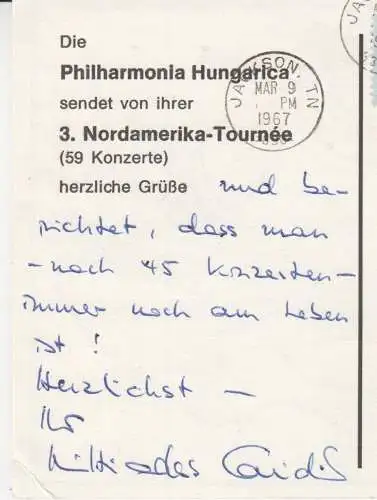 Die
Philharmonia Hungarica
sendet von ihrer
3. Nordamerika-Tournée
(59 Konzerte)
herzliche Grüße und be-
richtet, dass man
-nach 45 Konzerten-
immer noch am Leben
ist!
Herzlichst -
Ihr
Miltiades Caridis
JACKSON, TN
MAR 9
PM
1967
JA